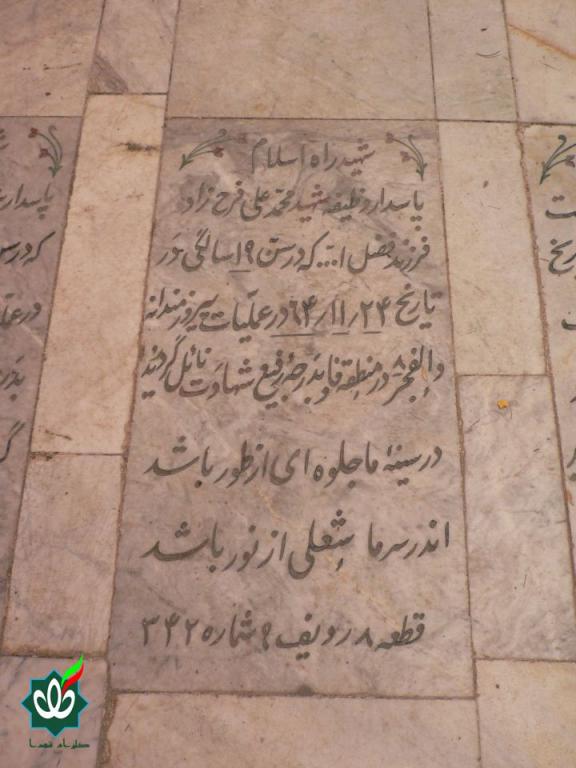 شهید راه اسلام
پاسدار وظیفه شهید محمد علی فرح زاد
فرزند فضل ا... که در سن ۱۹ سالگی در
تاریخ ۶۴/۱۱/۲۴ در عملیات پیروزمندانه
والفجر ۸ در منطقه فاو بدرجه رفیع شهادت نائل گردید
در سینهٔ ما جلوه ای از طور باشد
اندر سر ما شعلی از نور باشد
قطعه ۸ ردیف ۹ شماره ۳۴۲